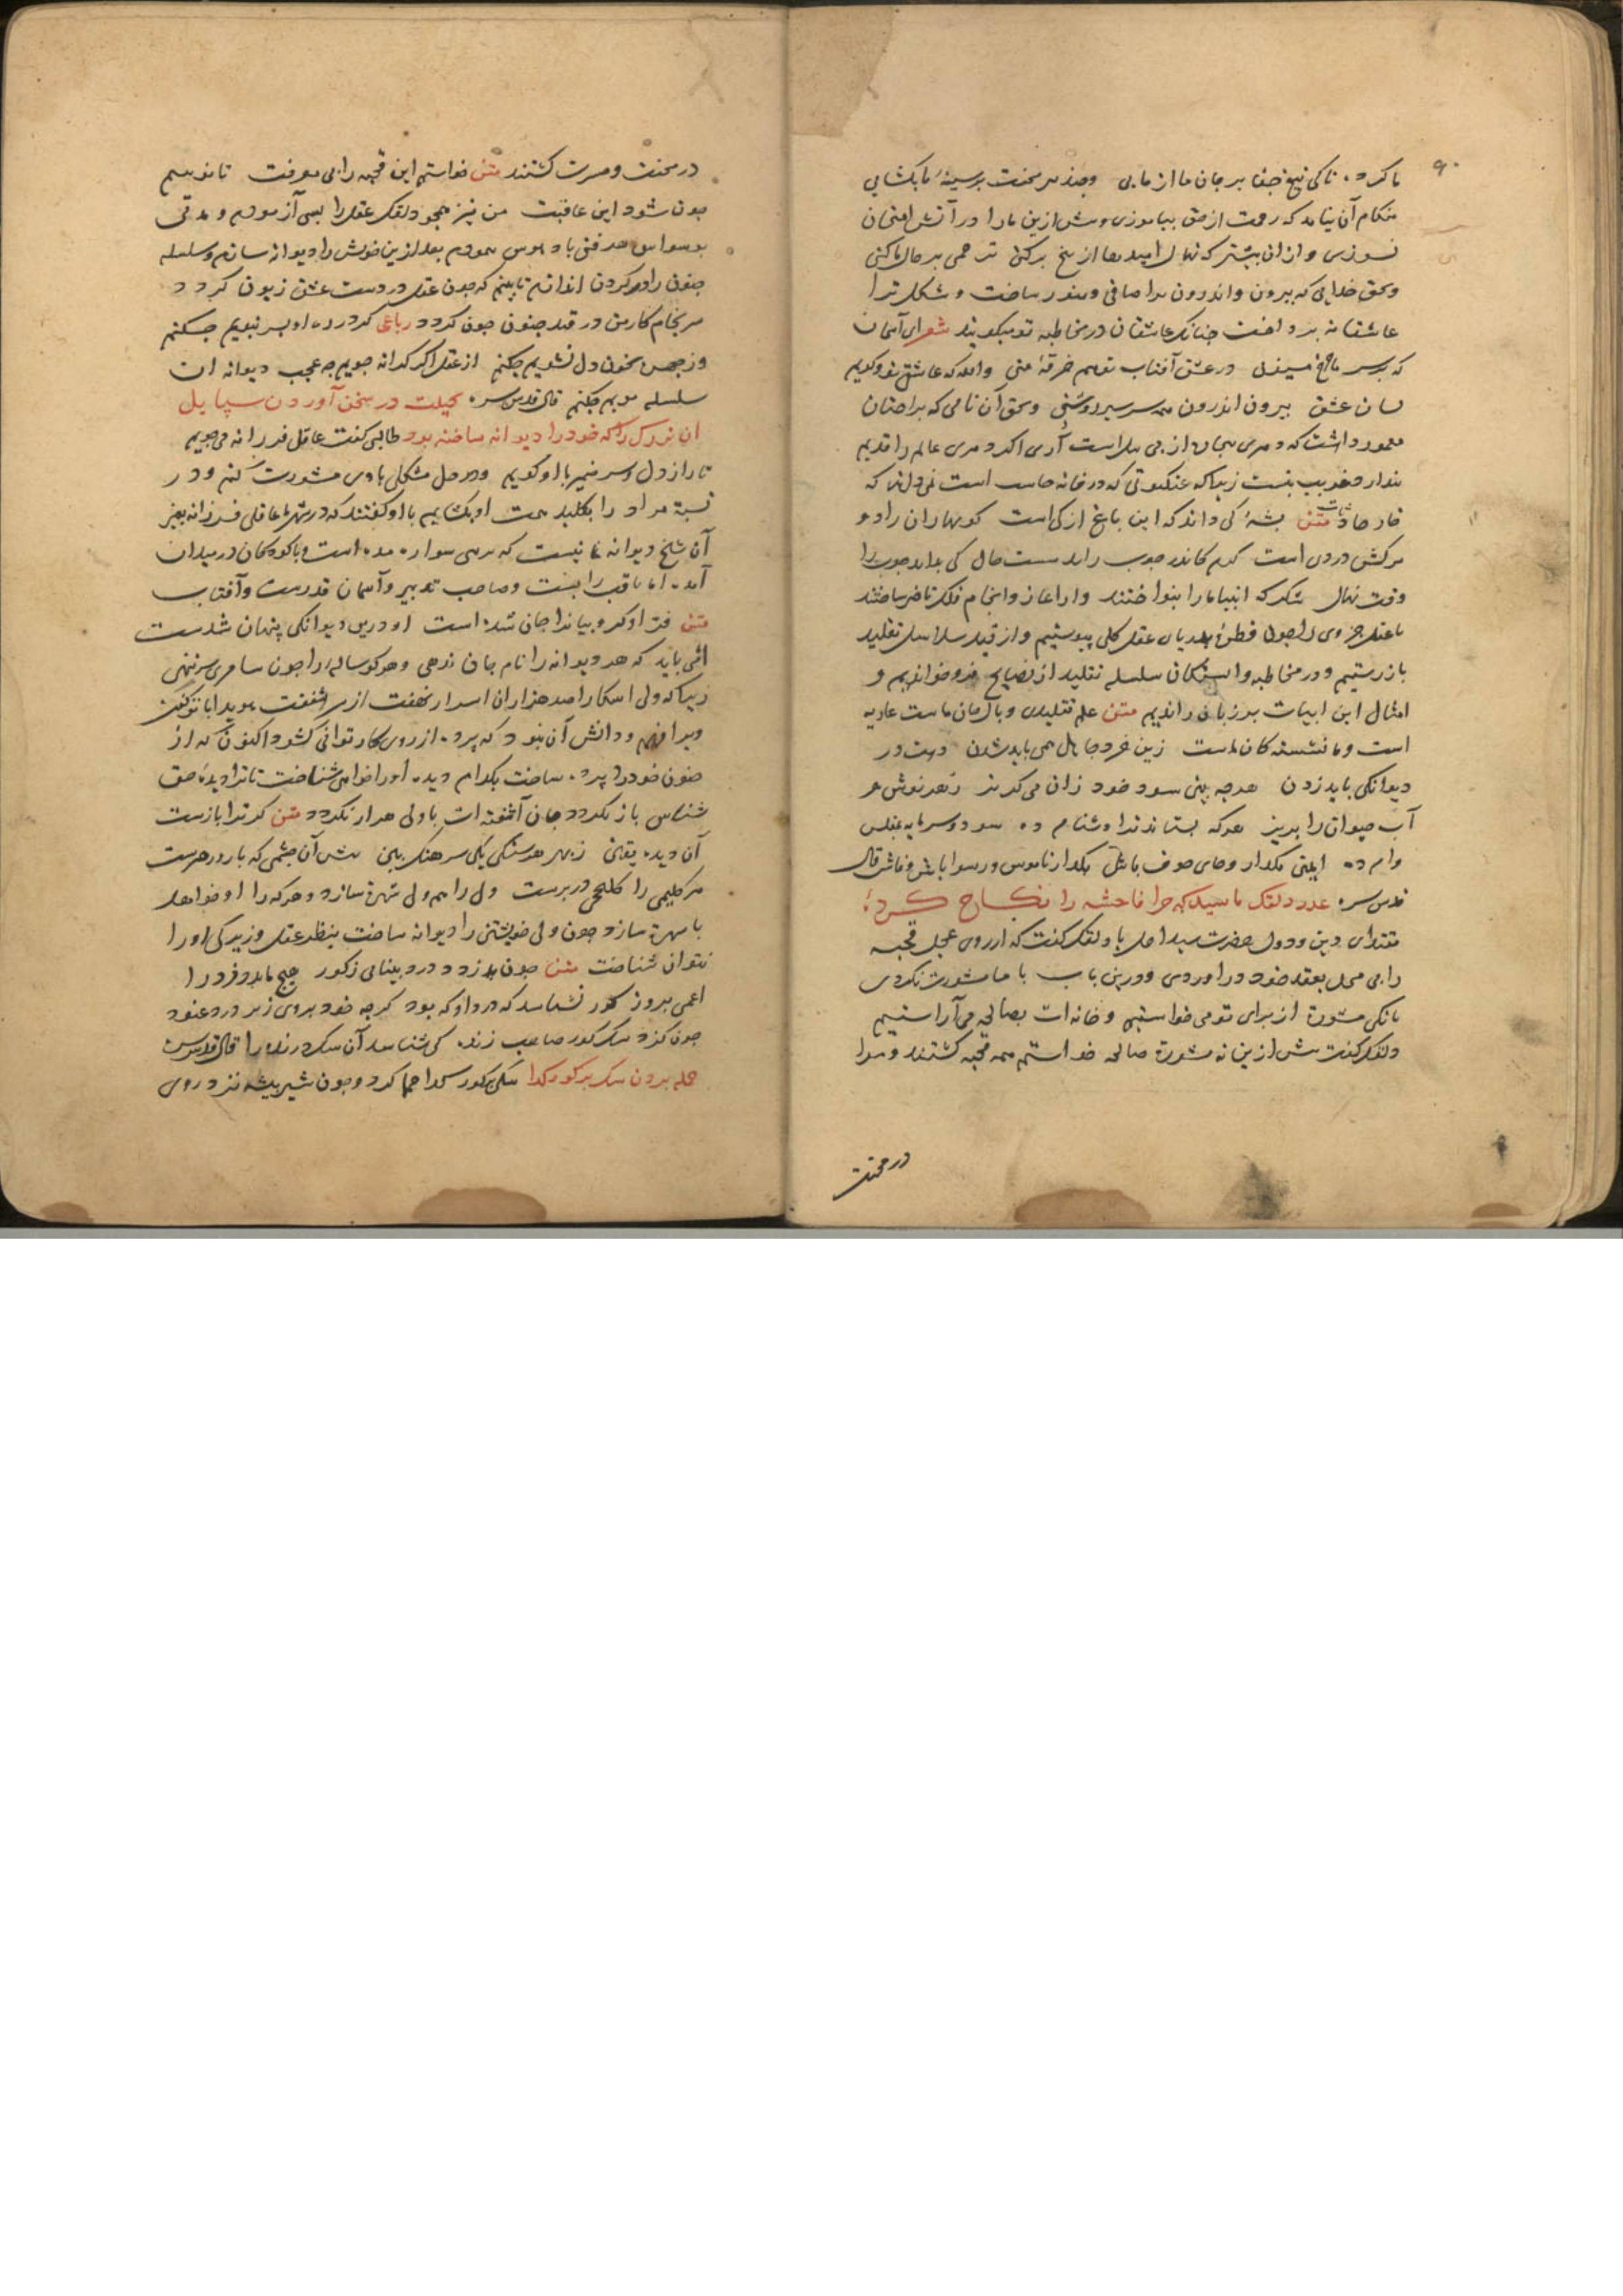 ۹۰
ما کرده تا کی تیغ جفا بر جان ما آزمایی و چند در محنت بر سینهٔ ما بکشایی
هنکام آن نیامد که رحمت از حق بیاموزی و پیش ازین ما را در آتش امتحان
نسوزی و از ان بیشتر که نهال امید ما از بیخ برکنی ترحمی بر حال ما کنی
و بحق خدایی که بیرون و اندرون ترا صافی و منور ساخت و شکل ترا
عاشقانه پرداخت جنانک عاشقان در مخاطبه تو میکویند شعر ای آسمان
که بر سر ما چرخ میزنی در عشق آفتاب تو هم خرقهٔ منی والله که عاشقی و بکویم
نشان عشق بیرون و اندرون همه سرسبز و روشنی و بحق آن نامی که ترا چنان
معمور داشت که دهری بیجان از بی است آری اکر دهری عالم را قدیم
پندارد غریب نیست زیرا که عنکبوتی که در خانه است نمی‌داند که
خانه حادثست متن پشهٔ کی داند که این باغ از کی است کو بهاران زاد و
مرکش در دی است کرم کاندر چوب زاید سست حال کی بداند چوب را
وقت نهال شکر که انبیا ما را بنواختند و از آغاز و انجام فلک ما خبر ساختند
تا عقل جزوی را چون قطرهٔ بدریای عقل کلی پیوستیم و از قید سلاسل تقلید
باز رستیم و در مخاطبه وابستکان سلسله تقلید از نصایح فرو خواندیم و
امثال این ابیات بر زبان راندیم متن علم تقلیدی وبال جان ماست عاریه
است و ما نشسته کان ماست زین خرد جاهل همی باید شدن دست در
دیوانکی باید زدن هرچه بینی سود خود زان می‌کریز زهر نوش و
آب حیوان را بریز هر که بستاید ترا دشنام ده سود و سرمایه بمفلس
وام ده ایمنی بکذار و جای خوف باش بکذار ناموس و رسوا باش و فاش قال
قدس سره عذر دلقک با سید که چرا فاحشه را نکاح کرد
مقتدای دین و دول حضرت سید اجل با دلقک کفت که از روی عجل قحبه
را بی محل بعقد خود در آوردی و درین باب با ما مشورت نکردی
تا بی مشورة از برای تو می خواستیم و خانه‌ات بصالحه می‌آراستیم
دلقک کفت پیش ازین نه مستوره صالحه خواستم همه قحبه کشتند و مرا
در محنت
در محنت و حسرت کشتند متن خواستم این قحبه را بی معرفت تا ببینم
چون شود این عاقبت من نیز همچو دلقک عقل را بسی آزمودم و مدتی
بوسواس هر فنی باد هوس پیمودم بعد ازین خویش را دیوانه سازم و سلسله
جنون را در کردن اندازم تا ببینم که چون عقل در دست عشق زبون کردد
سرانجام کار من در قید جنون چون کردد رباعی کرد در ره او بسر نپویم چکنم
وز چهره بخون دل نشویم چکنم از عقل اکر کرانه جویم چه عجب دیوانه ان
سلسله مویم چکنم قال قدس سره بحیلت در سخن آوردن سایل
آن بزرک را که خود را دیوانه ساخته بود طالبی کفت عاقل فرزانه می‌جویم
تا راز دل و سر ضمیر با او کویم و در حل مشکلی با وی مشورت کنم و در
بستهٔ مراد را بکلید همت او بکشایم با او کفتند که در شهر ما عاقلی فرزانه بغیر
آن شیخ دیوانه نما نیست که بر نی سواره شده است و با کودکان در میدان
آمده اما ثاقب رایست و صاحب تدبیر و آسمان قدرست و آفتاب
متن فر او کروبیان را جان شده است او درین دیوانکی پنهان شدست
اما نمی باید که هر دیوانه را نام جان ندهی و هر کوساله را چون سامری سر ننهی
زیرا که ولی آشکارا صد هزاران اسرار نهفت از سر شفقت هویدا با تو کفت
و ترا فهم و دانش آن نبود که پرده از روی کار توانی کشود اکنون که از
جنون خود را پرده ساخت بکدام دیده او را خواهی شناخت تا ترا دیده حق
شناس باز نکردد جان آشفته‌ات با ولی همراز نکردد متن کر ترا بازست
آن دیده یقین زیر هر سنکی یکی سرهنک بین پیش آن چشمی که باز و رهبرست
هر کلیمی را کلیمی در برست ولی را هم ولی شهره سازد و هر که را او خواهد
با بهره سازد چون ولی خویشتن را دیوانه ساخت بنظر عقل و زیرکی او را
نتوان شناخت متن چون بدزدد دزد بینایی ز کور هیچ یابد دزد را
اعمی بروز کور نشناسد که دزد او که بود کرچه خود بر وی زند دزد عنود
چون کزد سک کور صاحب ژنده کی شناسد آن سک درنده را قال قدس سره
حمله بردن سک بر کور کدا سکی بر کور کدا حمله کرد و چون شیر بیشه نزد روی